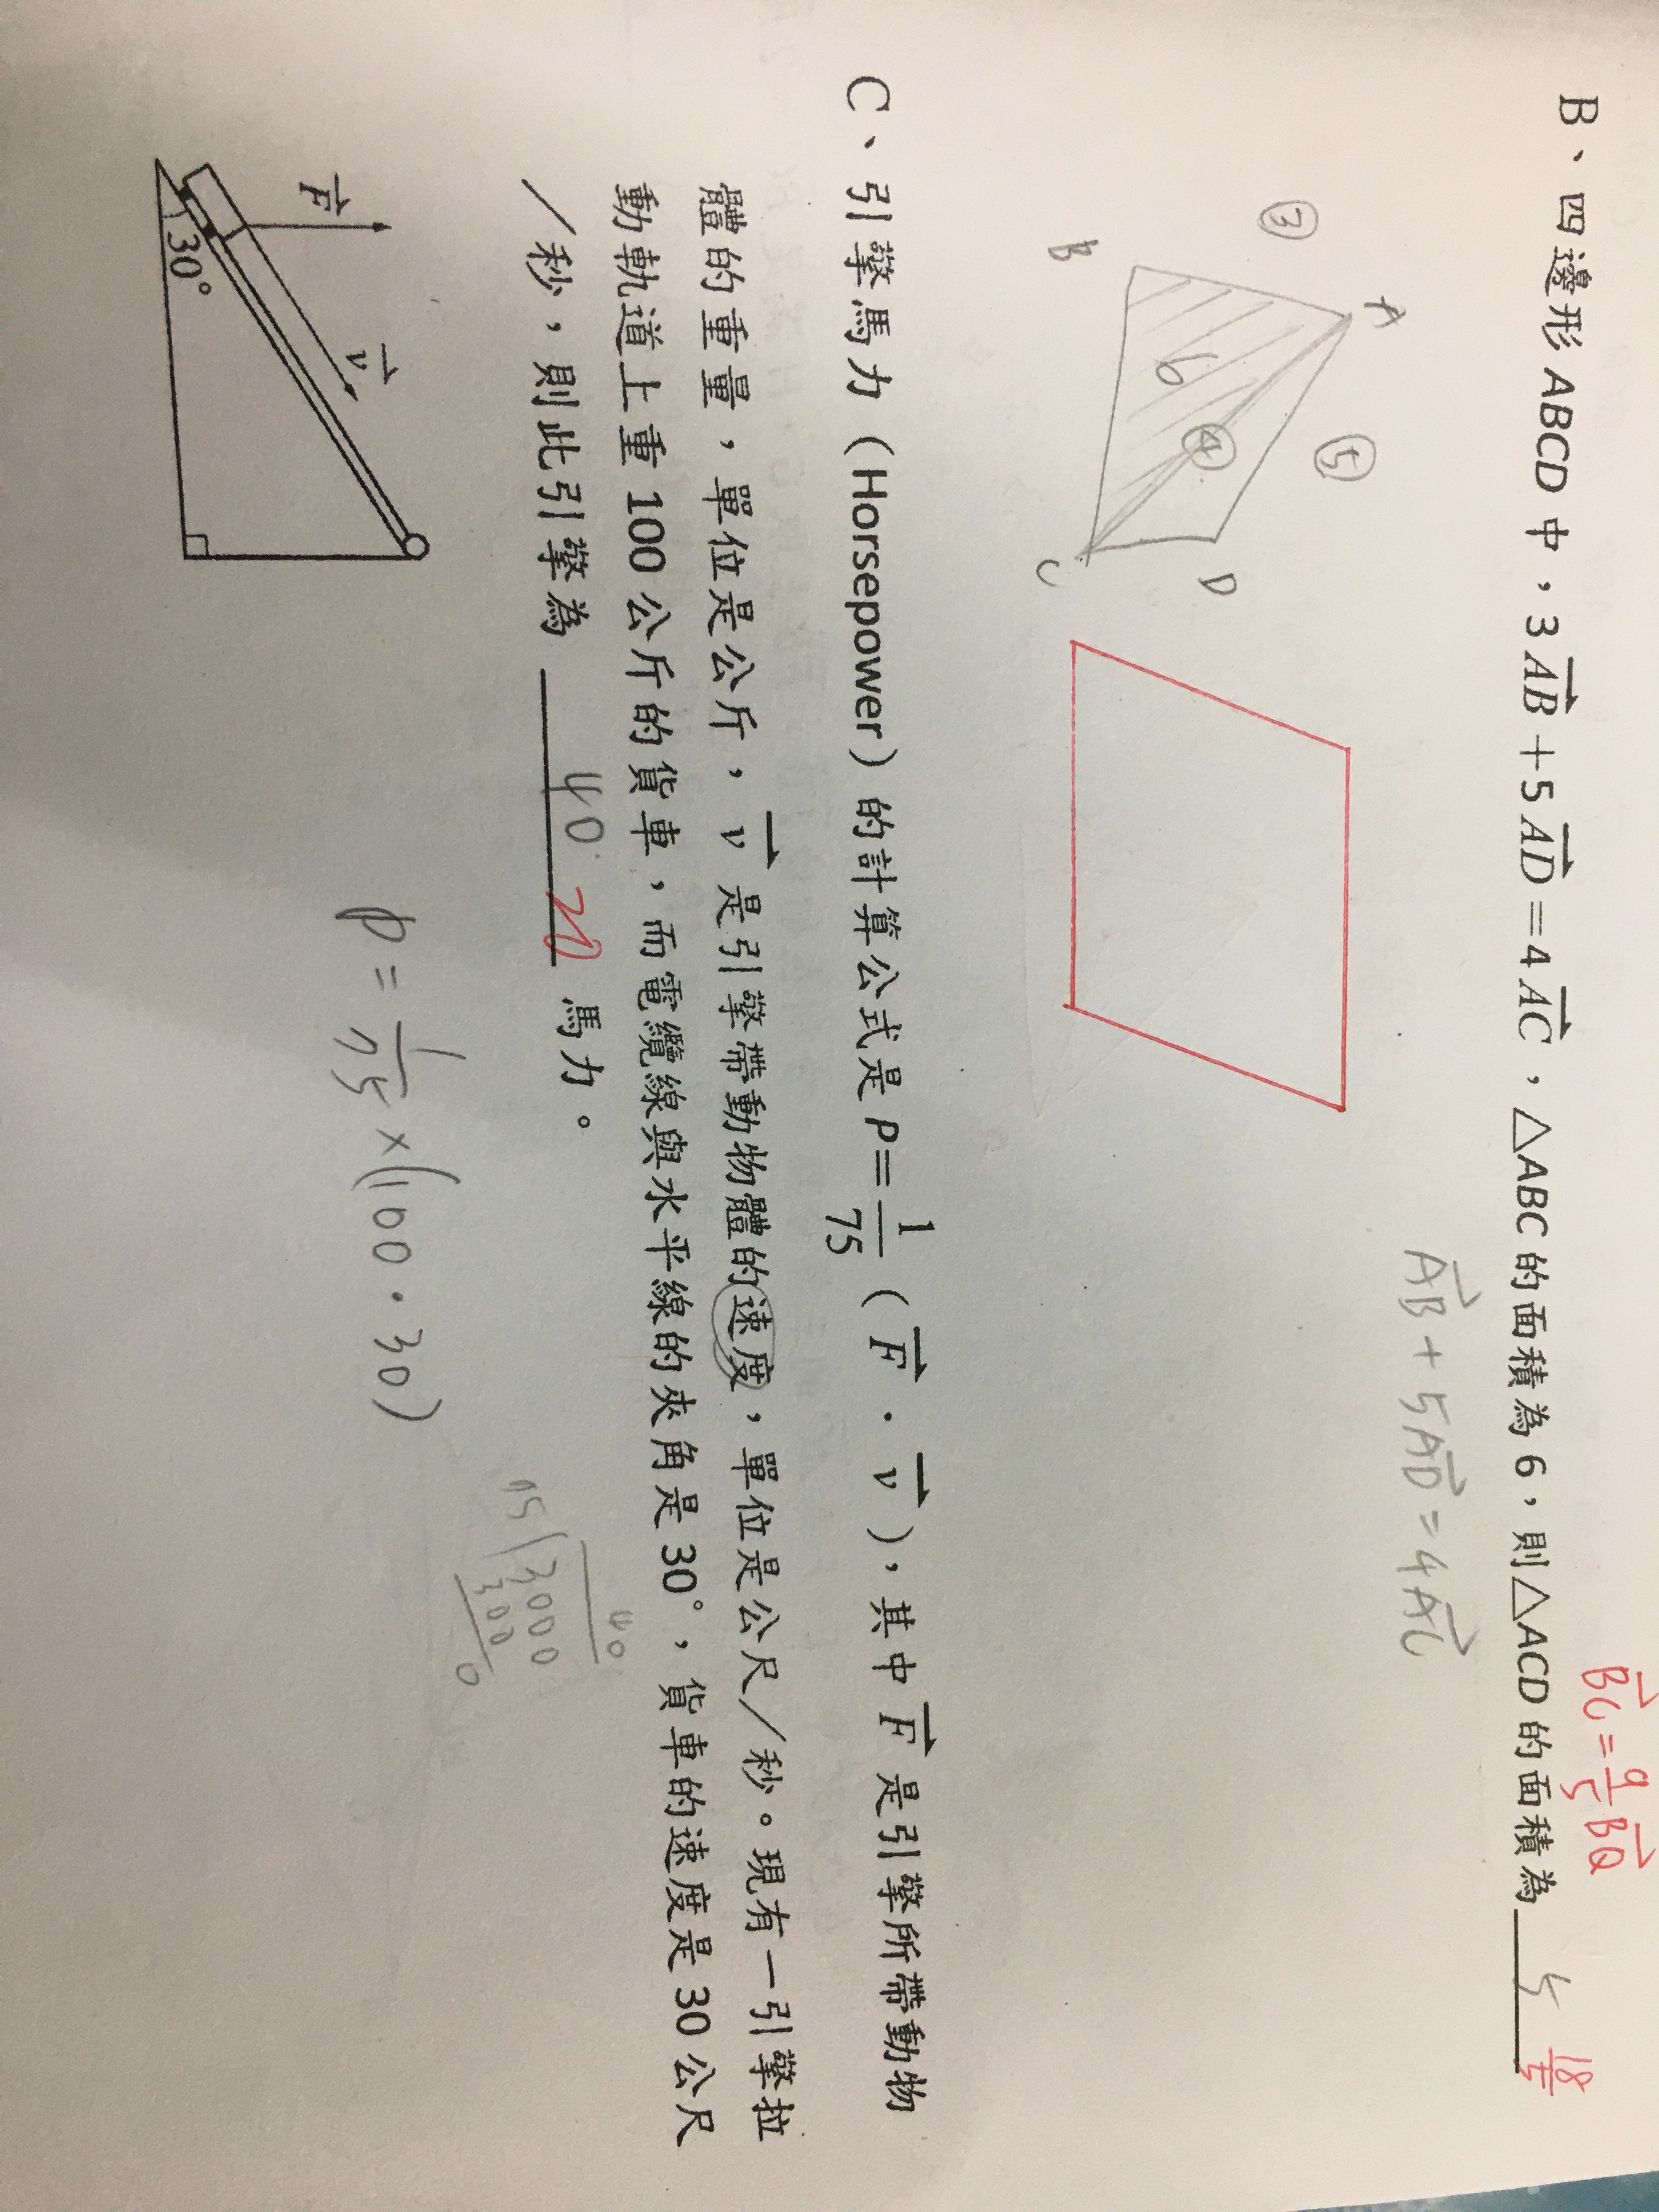 BC = 9/5 BQ
B、四邊形 ABCD 中，3AB＋5AD＝4AC，△ABC 的面積為 6，則△ACD 的面積為 5 18/5
AB + 5AD = 4AC
A
③
⑤
6
④
B
D
C
C、引擎馬力（Horsepower）的計算公式是 P＝1/75（F．v），其中 F 是引擎所帶動物
體的重量，單位是公斤，v 是引擎帶動物體的速度，單位是公尺／秒。現有一引擎拉
動軌道上重 100 公斤的貨車，而電纜線與水平線的夾角是 30°，貨車的速度是 30 公尺
／秒，則此引擎為 40 20 馬力。
40
75 3000
300
0
P = 1/75 × (100 · 30)
F
v
30°